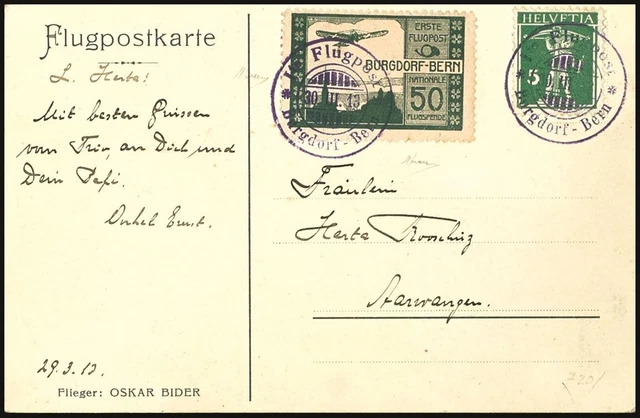 Flugpostkarte
L. Herta!
Mit besten Grüssen
vom Trio, an Dich und
Dein Papi.
Onkel Ernst.
29.3.13.
Flieger: OSKAR BIDER
ERSTE
FLUGPOST
BURGDORF-BERN
NATIONALE
50
FLUGSPENDE
I. Flugpost
30 III. 13
Burgdorf - Bern
HELVETIA
5
I. Flugpost
30 III.
Burgdorf - Bern
Fräulein
Herta
Aarwangen.